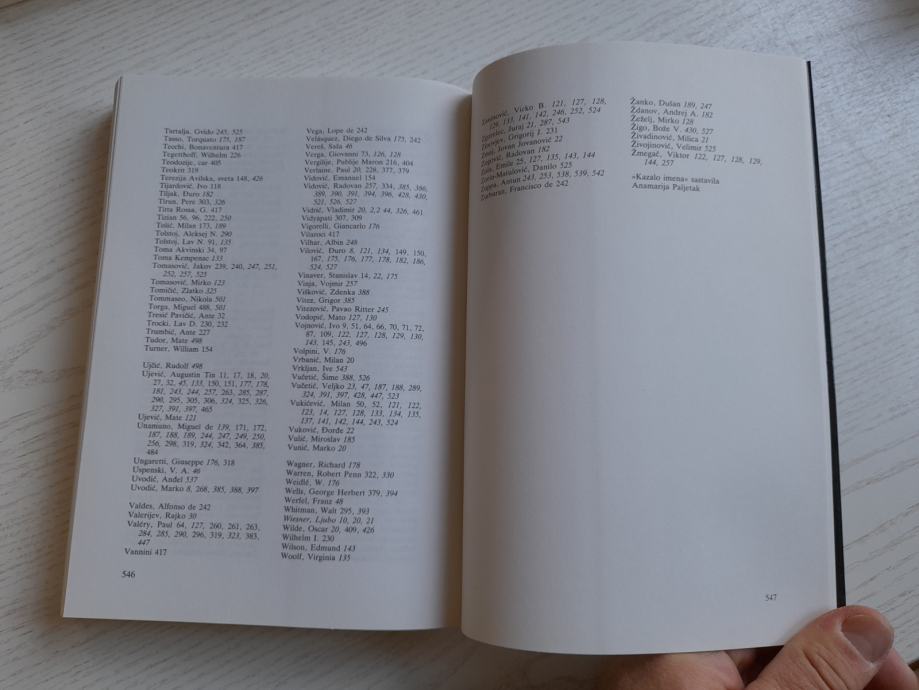 Tartalja, Gvido 243, 525
Tasso, Torquato 175, 187
Tecchi, Bonaventura 417
Tegetthoff, Wilhelm 226
Teodozije, car 405
Teokrit 319
Terezija Avilska, sveta 148, 426
Tijardović, Ivo 118
Tiljak, Đuro 182
Tirun, Pere 303, 326
Tirta Rossa, G. 417
Tizian 56, 96, 222, 250
Tošić, Milan 173, 189
Tolstoj, Aleksej N. 290
Tolstoj, Lav N. 91, 135
Toma Akvinski 34, 97
Toma Kempenac 133
Tomasović, Jakov 239, 240, 247, 251,
252, 257, 525
Tomasović, Mirko 123
Tomičić, Zlatko 325
Tommaseo, Nikola 501
Torga, Miguel 488, 501
Tresić Pavičić, Ante 32
Trocki, Lav D. 230, 232
Trumbić, Ante 227
Tudor, Mate 498
Turner, William 154
Ujčić, Rudolf 498
Ujević, Augustin Tin 11, 17, 18, 20,
27, 32, 45, 133, 150, 151, 177, 178,
181, 243, 244, 257, 263, 285, 287,
290, 295, 305, 306, 324, 325, 326,
327, 391, 397, 465
Ujević, Mate 121
Unamuno, Miguel de 139, 171, 172,
187, 188, 189, 244, 247, 249, 250,
256, 298, 319, 324, 342, 364, 385,
484
Ungaretti, Giuseppe 176, 318
Uspenski, V. A. 46
Uvodić, Anđel 537
Uvodić, Marko 8, 268, 385, 388, 397
Valdes, Alfonso de 242
Valerijev, Rajko 30
Valéry, Paul 64, 127, 260, 261, 263,
284, 285, 290, 296, 319, 323, 383,
447
Vannini 417
546
Vega, Lope de 242
Velásquez, Diego de Silva 175, 242
Vereš, Saša 46
Verga, Giovanni 73, 126, 128
Vergilije, Publije Maron 216, 404
Verlaine, Paul 20, 228, 377, 379
Vidović, Emanuel 154
Vidović, Radovan 257, 334, 385, 386,
389, 390, 391, 394, 396, 428, 430,
521, 526, 527
Vidrić, Vladimir 20, 2,2 44, 326, 461
Vidyapati 307, 309
Vigorelli, Giancarlo 176
Vilaroci 417
Vilhar, Albin 248
Vilović, Đuro 8, 121, 134, 149, 150,
167, 175, 176, 177, 178, 182, 186,
524, 527
Vinaver, Stanislav 14, 22, 175
Vinja, Vojmir 257
Višković, Zdenka 388
Vitez, Grigor 385
Vitezović, Pavao Ritter 245
Vodopić, Mato 127, 130
Vojnović, Ivo 9, 51, 64, 66, 70, 71, 72,
87, 109, 122, 127, 128, 129, 130,
143, 145, 243, 496
Volpini, V. 176
Vrbanić, Milan 20
Vrkljan, Ive 543
Vučetić, Šime 388, 526
Vučetić, Veljko 23, 47, 187, 188, 289,
324, 391, 397, 428, 447, 523
Vukičević, Milan 50, 52, 121, 122,
123, 14, 127, 128, 133, 134, 135,
137, 141, 142, 144, 243, 524
Vuković, Đorđe 22
Vulić, Miroslav 185
Vunić, Marko 20
Wagner, Richard 178
Warren, Robert Penn 322, 330
Weidlé, W. 176
Wells, George Herbert 379, 394
Werfel, Franz 48
Whitman, Walt 295, 393
Wiesner, Ljubo 10, 20, 21
Wilde, Oscar 20, 409, 426
Wilhelm I. 230
Wilson, Edmund 143
Woolf, Virginia 135
Virko B. 121, 127, 128,
129, 133, 141, 142, 246, 252, 524
Juraj 21, 287, 543
Grigorij I. 231
Zmaj, Jovan Jovanović 22
Radovan 182
Zola, Emile 25, 127, 135, 143, 144
Danilo 525
Zuppa, Antun 243, 253, 538, 539, 542
Zurbaran, Francisco de 242
Žanko, Dušan 189, 247
Ždanov, Andrej A. 182
Žeželj, Mirko 128
Žigo, Bože V. 430, 527
Živadinović, Milica 21
Živojinović, Velimir 525
Žmegač, Viktor 122, 127, 128, 129,
144, 257
»Kazalo imena« sastavila
Anamarija Paljetak
547